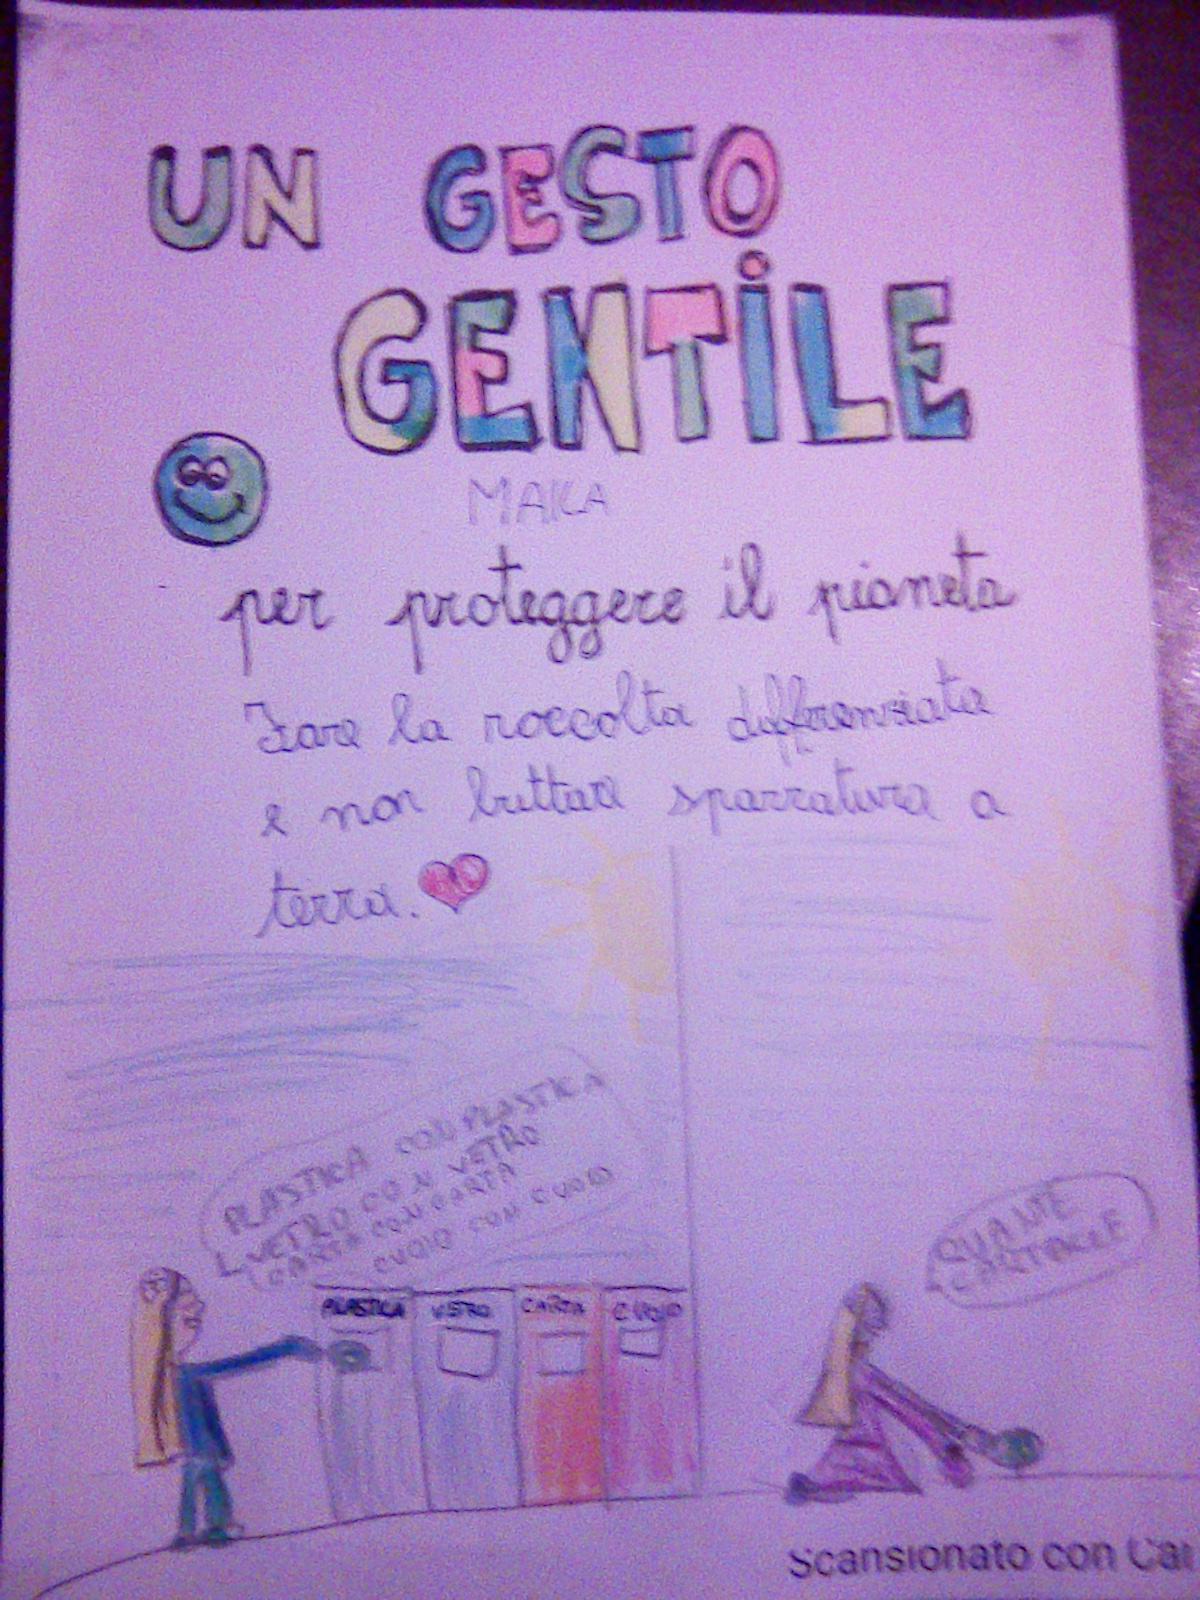 UN GESTO
GENTILE
MAKA
per proteggere il pianeta
Fare la raccolta differenziata
e non buttare spazzatura a
terra.
PLASTICA CON PLASTICA
VETRO CON VETRO
CARTA CON CARTA
CUOIO CON CUOIO
QUANTE
CARTACCE
PLASTICA VETRO CARTA CUOIO
Scansionato con Ca